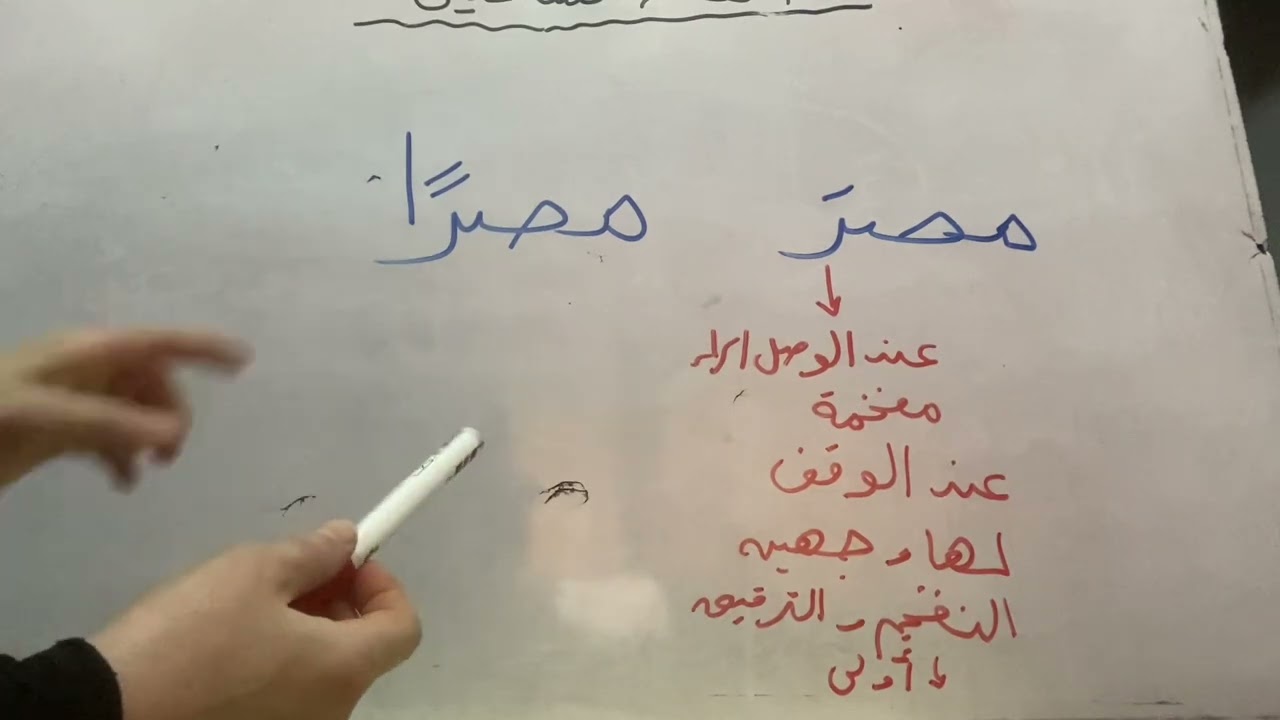 مصرَ مصرًا
عند الوصل الراء
مفخمة
عند الوقف
لها وجهين
التفخيم والترقيق
أولى